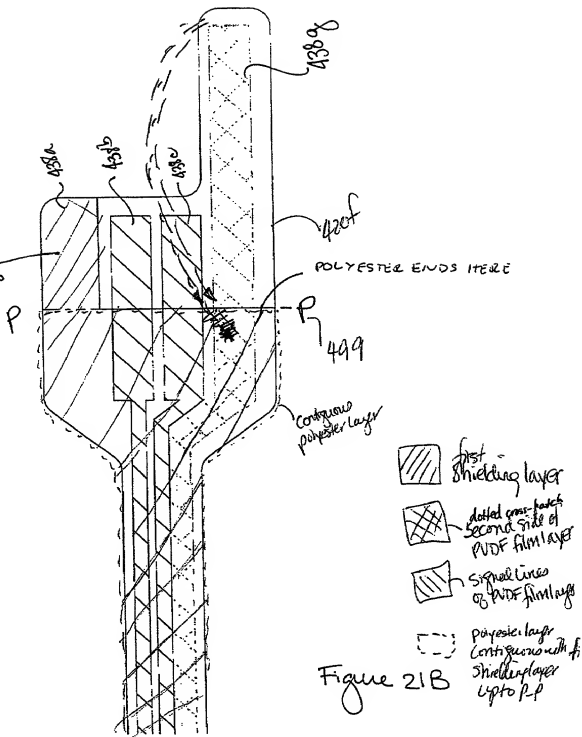 438g
438a
438b
438c
420f
POLYESTER ENDS HERE
P
P
499
contiguous
polyester layer
first
shielding layer
dotted cross-hatch
second side of
PVDF film layer
signal lines
of PVDF film layer
polyester layer
contiguous with
shielding layer
up to P-P
Figure 21B